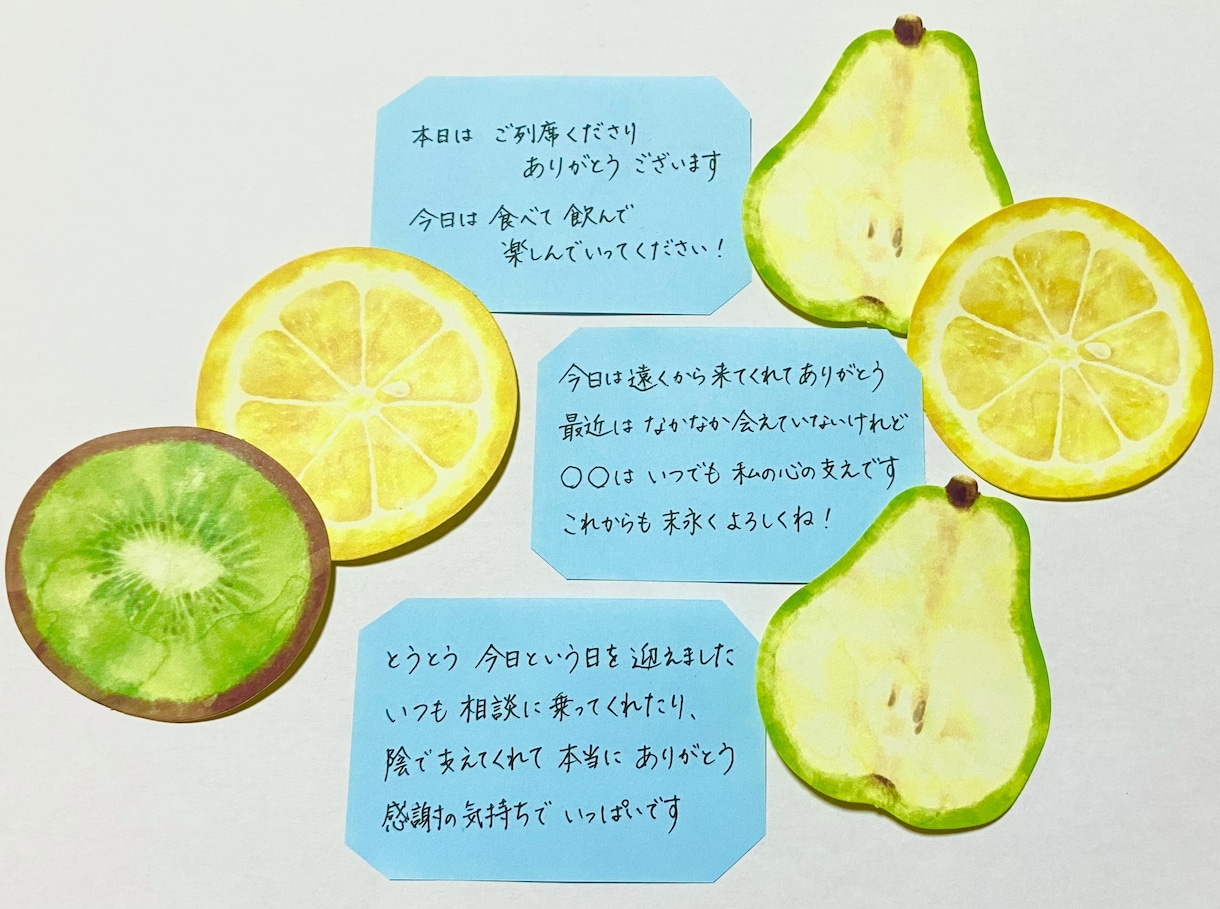 本日は ご列席くださり
ありがとう ございます
今日は 食べて 飲んで
楽しんでいってください!
今日は遠くから来てくれてありがとう
最近は なかなか会えていないけれど
〇〇は いつでも 私の心の支えです
これからも 末永くよろしくね!
とうとう 今日という日を 迎えました
いつも 相談に乗ってくれたり、
陰で支えてくれて 本当に ありがとう
感謝の気持ちで いっぱいです